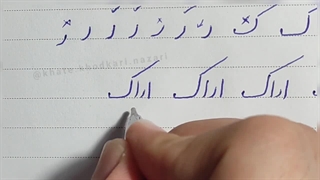 ک ک ر ر ر ر ر ر ر
@khate.khodkari.nazari
اراک اراک اراک